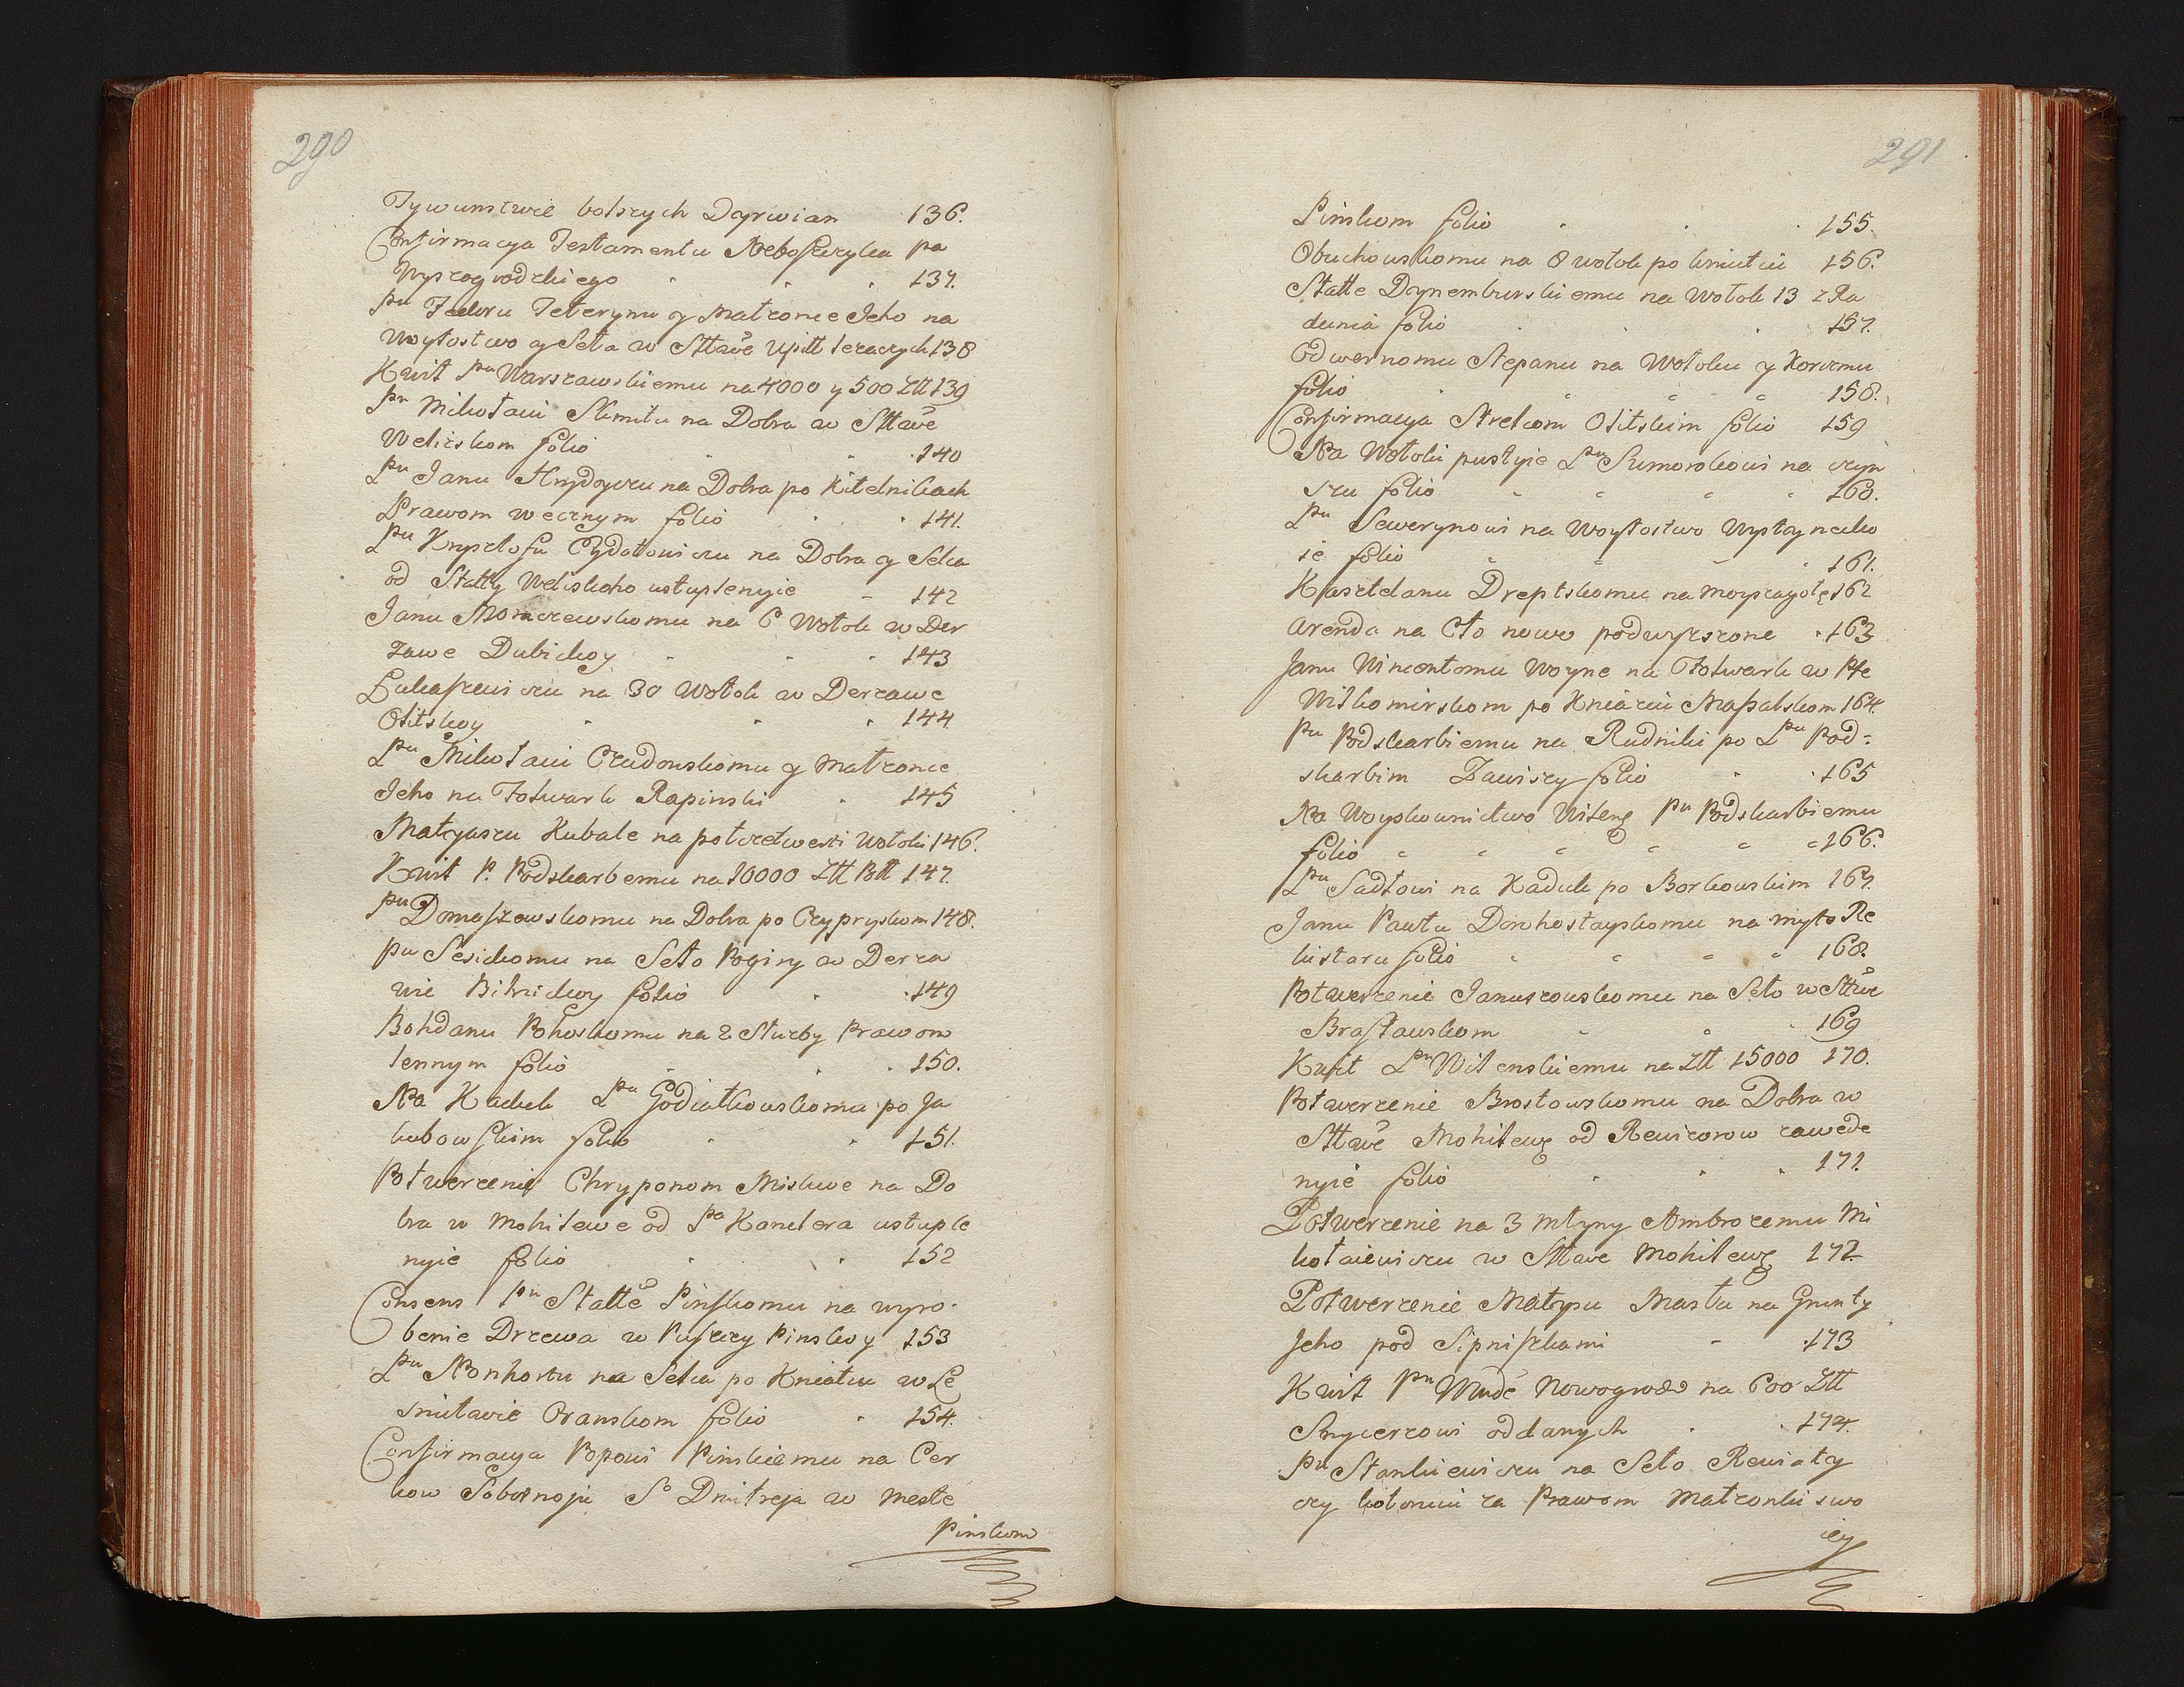 290
Tywunstwie bolszych Dyrwian 136.
Confirmacya Testamentu Neboszczyka pa
Wyszogrodzkiego 137.
Pu Fedoru Teterynu y Malzonce Jeho na
Woytostwo y Seła w Sttwe Upitt lezaczych 138
Kwit Pu Warszawskiemu na 4000 y 500 Ztt 139
Pu Mikołaiu Skimitu na Dobra w Sttwe
Weliskom folio 140
Pu Janu Hrydyczu na Dobra po Kitelnikach
Prawom wecznym folio 141.
Pu Krysztofu Cydatowiczu na Dobra y Selca
od Statty Weliskoho ustuplenyie 142
Janu Monczewskomu na 6 Wołok w Der
zawe Dubickoy 143
Łukaszewiczu na 30 Wołok w Derzawe
Olitskoy 144
Pu Mikołaiu Czudowskomu y Malzonce
Jeho na Folwark Rapinski 145
Matyaszu Kubale na połczetwerti Wołoki 146.
Kwit P. Podskarbemu na 10000 Ztt Ptt 147.
Pu Domaszewskomu na Dobra po Czypryskom 148.
Pu Sesickomu na Seło Poginy w Derza
wie Bitnickoy folio 149
Bohdanu Pohoskomu na 2 Słuzby Prawom
lennym folio 150.
Na Kaduk Pu Godiatkowskomu po Ja
kubowskim folio 151.
Potwerzenie Chryponom Miskwe na Do
bra w Mohilewe od Pa Kanclera ustuple
nyie folio 152
Consens Pu Statte Pinskomu na wyro-
benie Drzewa w Puszczy Pinskoy 153
Pu Nonhortu na Selca po Kniatcu w Le
snictwie Oranskom folio 154.
Confirmacya Popowi Pinskiemu na Cer
kow Sobornoju So Dmitreja w meste
Pinskom
291
Pinskom folio 155.
Obuchowskomu na 8 wołok po Kmitiu 156.
Statte Dynemburskiemu na Wołok 13 z Ra
dunia folio 157.
Odwernomu Stepanu na Wołoku y Korczmu
folio 158.
Confirmacya Strelcom Olitskim folio 159
Na Wołoki pustyie Pu Sumorokowi na czyn
szu folio 160.
Pu Sewerynowi na Woytostwo
ie folio 161.
Kasztelanu Dreptskomu na Moyszagołę 162
Arenda na Cło nowo podwyzszone 163
Janu Wincentomu Woyne na Folwark w Pte
Wiłkomirskom po Kniaziu Masalskom 164.
Pu Podskarbiemu na Rudniki po Pu Pod-
skarbim Zawiszy folio 165
Na Woyskownictwo Wileng Pu Podskarbiemu
folio 166.
Pu Sadłowi na Kaduk po Borkowskim 167.
Janu Pawłu Dorohostayskomu na myto Re
listaru folio 168.
Potwerzenie Januszowskomu na Seło w Sttwe
Brasławskom 169
Kwit Pu Wilenskiemu na Ztt 15000 170.
Potwerzenie Brostowskomu na Dobra w
Sttwe Mohilewg od Rewizorow zawede
nyie folio 171.
Potwerzenie na 3 młyny Ambrozemu Mi
kołaiewiczu w Sttwe Mohilewg 172.
Potwerzenie Matysu Masłu na Grunty
Jeho pod Sipniszkami 173
Kwit Pu Wwde Nowogrods na 600 Ztt
Snycerzowi oddanych 174.
Pu Stankiewiczu na Seło Rewiaty
czy kotoruiu za Prawom Malzonki swo
iey